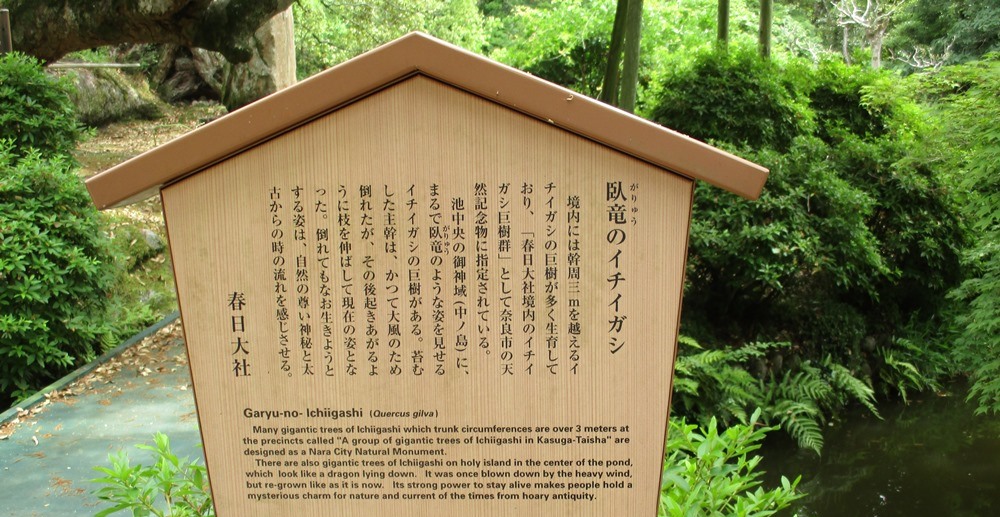 臥竜のイチイガシ
がりゅう
境内には幹周三mを越えるイ
チイガシの巨樹が多く生育して
おり、「春日大社境内のイチイ
ガシ巨樹群」として奈良市の天
然記念物に指定されている。
池中央の御神域(中ノ島)に、
まるで臥竜のような姿を見せる
がりゅう
イチイガシの巨樹がある。苔む
した主幹は、かつて大風のため
倒れたが、その後起きあがるよ
うに枝を伸ばして現在の姿とな
った。倒れてもなお生きようと
する姿は、自然の尊い神秘と太
古からの時の流れを感じさせる。
春日大社
Garyu-no- Ichiigashi (Quercus gilva)
Many gigantic trees of Ichiigashi which trunk circumferences are over 3 meters at
the precincts called "A group of gigantic trees of Ichiigashi in Kasuga-Taisha" are
designed as a Nara City Natural Monument.
There are also gigantic trees of Ichiigashi on holy island in the center of the pond,
which look like a dragon lying down. It was once blown down by the heavy wind,
but re-grown like as it is now. Its strong power to stay alive makes people hold a
mysterious charm for nature and current of the times from hoary antiquity.